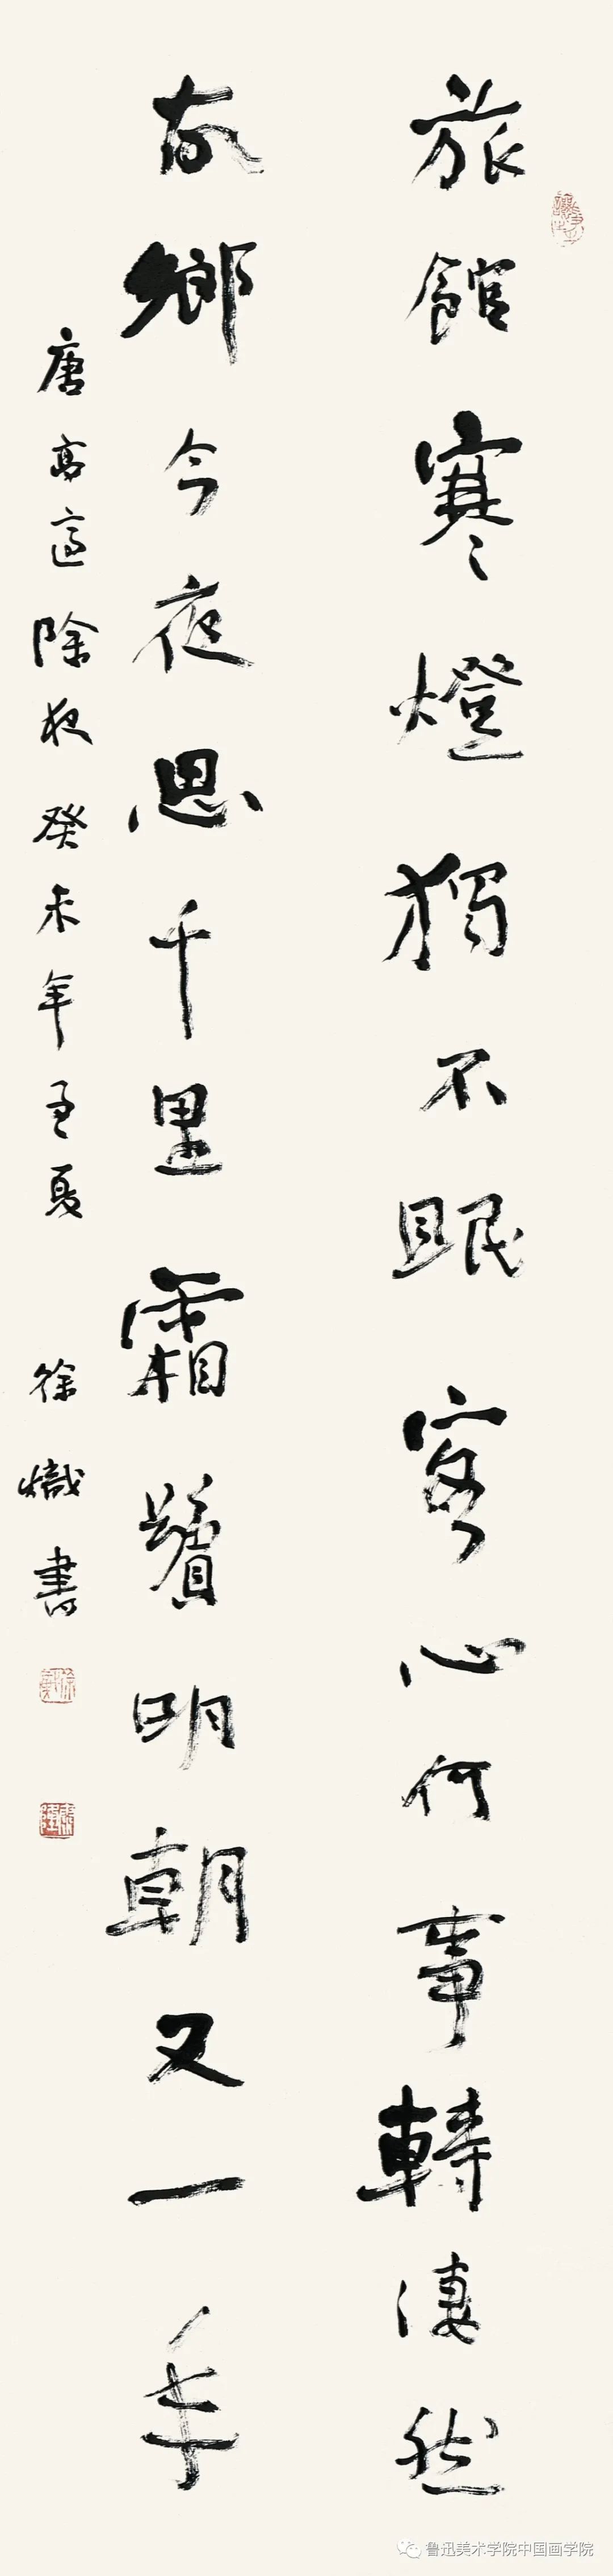 旅館寒燈獨不眠客心何事轉淒然
故鄉今夜思千里霜鬢明朝又一年
唐高適除夜癸未年孟夏 徐熾書
鲁迅美术学院中国画学院